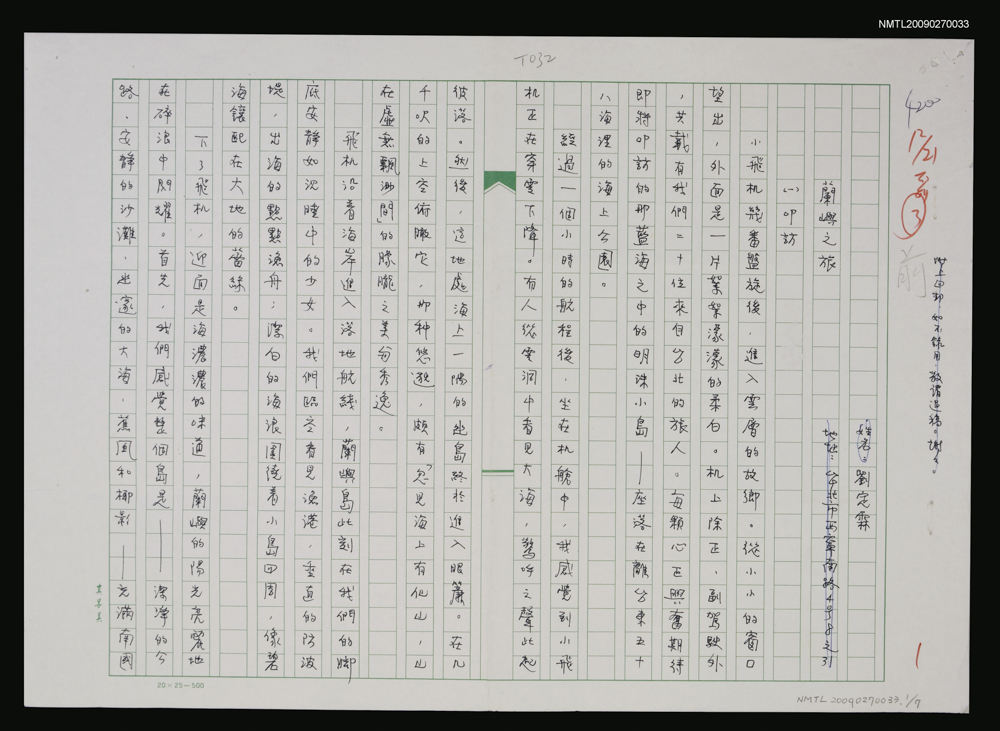 NMTL20090270033
T032
蘭嶼之旅
(一)叩訪
姓名：劉定霖
小飛机幾番盤旋後，進入雲層的故鄉。從小小的窗口
望出，外面是一片絮絮濛濛的柔白。机上除正、副駕駛外
，共載有我們二十位來自台北的旅人。每顆心正興奮期待
即將叩訪的那藍海之中的明珠小島——座落在離台東五十
八海浬的海上公園。
經過一個小時的航程後，坐在机艙中，我感覺到小飛
机正在穿雲下降。有人從雲洞中看見大海，驚呼之聲此起
彼落。然後，這地處海上一隅的孤島終於進入眼簾。在九
千呎的上空俯瞰它，那種悠邈，頗有忽見海上有仙山，山
在虛無飄渺間的朦朧之美與秀逸。
飛机沿着海岸進入落地航綫，蘭嶼島此刻在我們的腳
底安靜如沉睡中的少女。我們臨空看見漁港，垂直的防波
堤，出海的點點漁舟；潔白的海浪圍繞着小島四周，像碧
海鑲配在大地的蕾絲。
下了飛机，迎面是海濃濃的味道，蘭嶼的陽光亮麗地
在碎浪中閃耀。首先，我們感覺整個島是——潔淨的公
路，安靜的沙灘，幽邃的大海，蕉風和椰影——充滿南國
20×25=500
1
NMTL20090270033.1/7